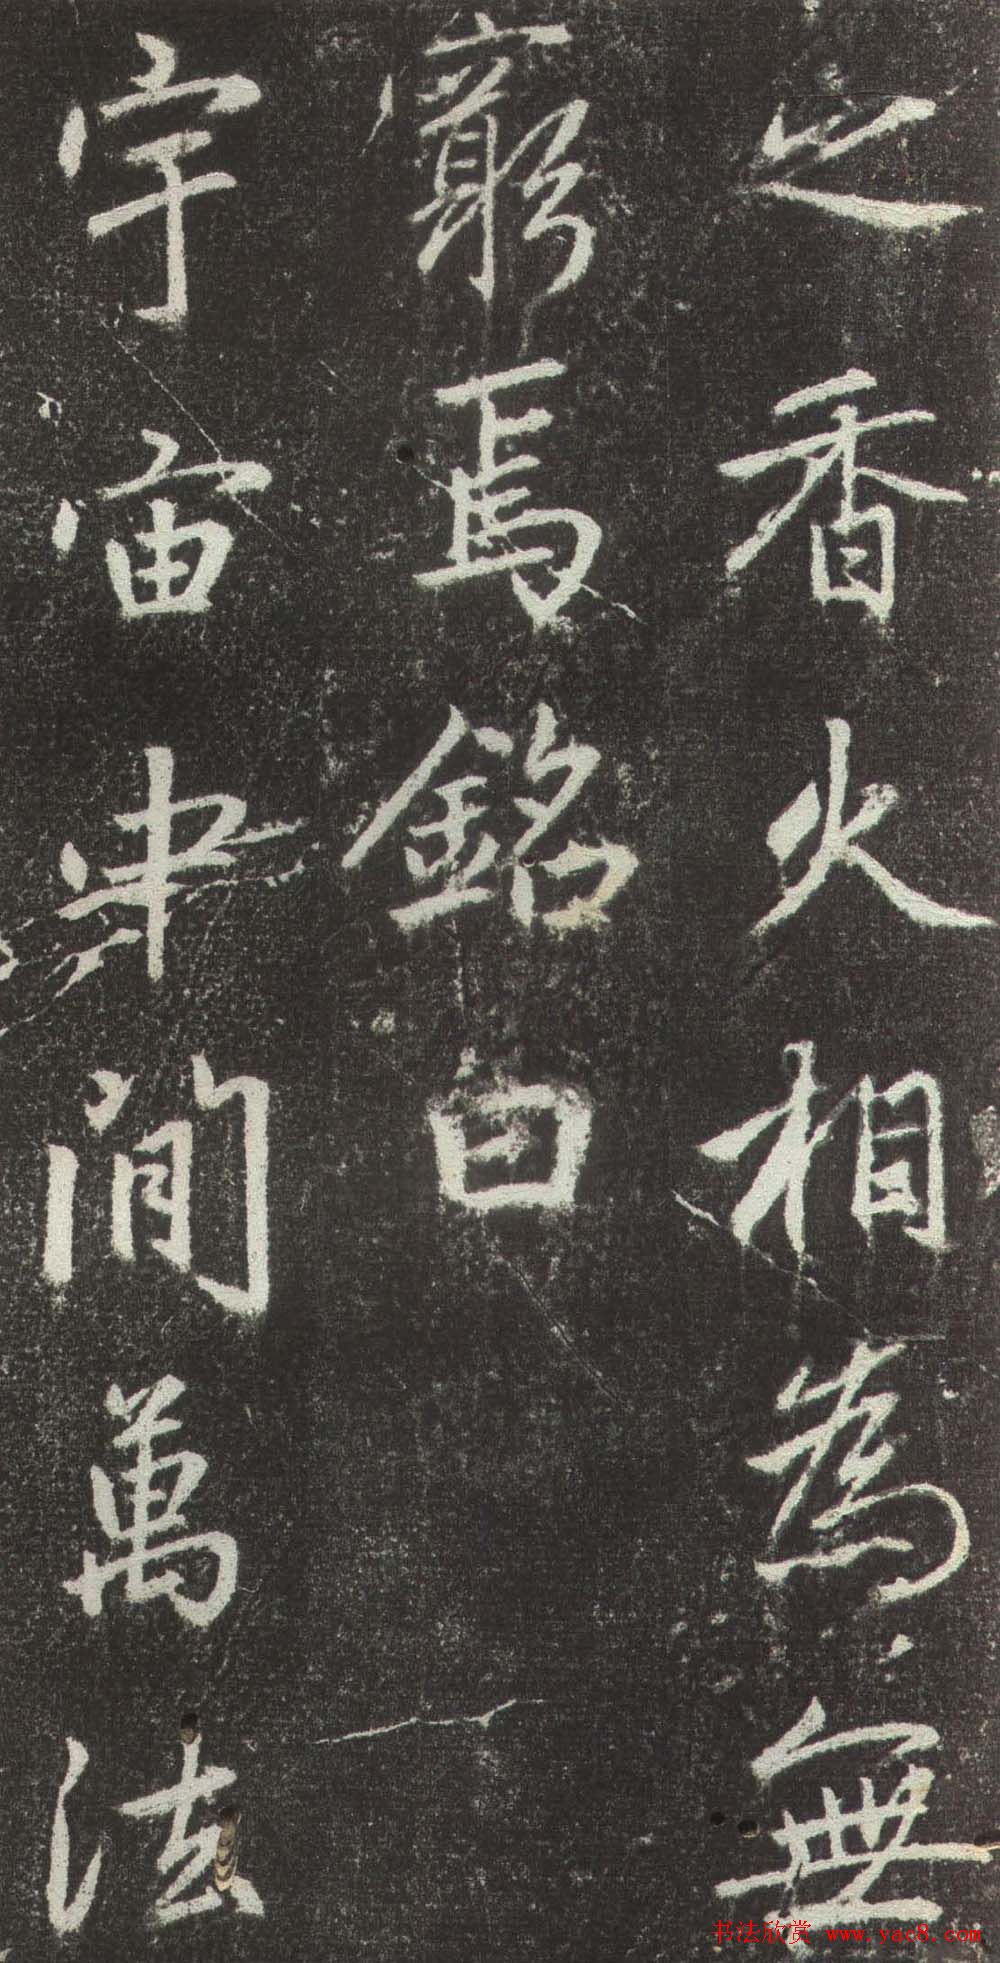 之香火相為無
窮焉銘曰
宇宙中間萬法
书法欣赏 www.yac8.com